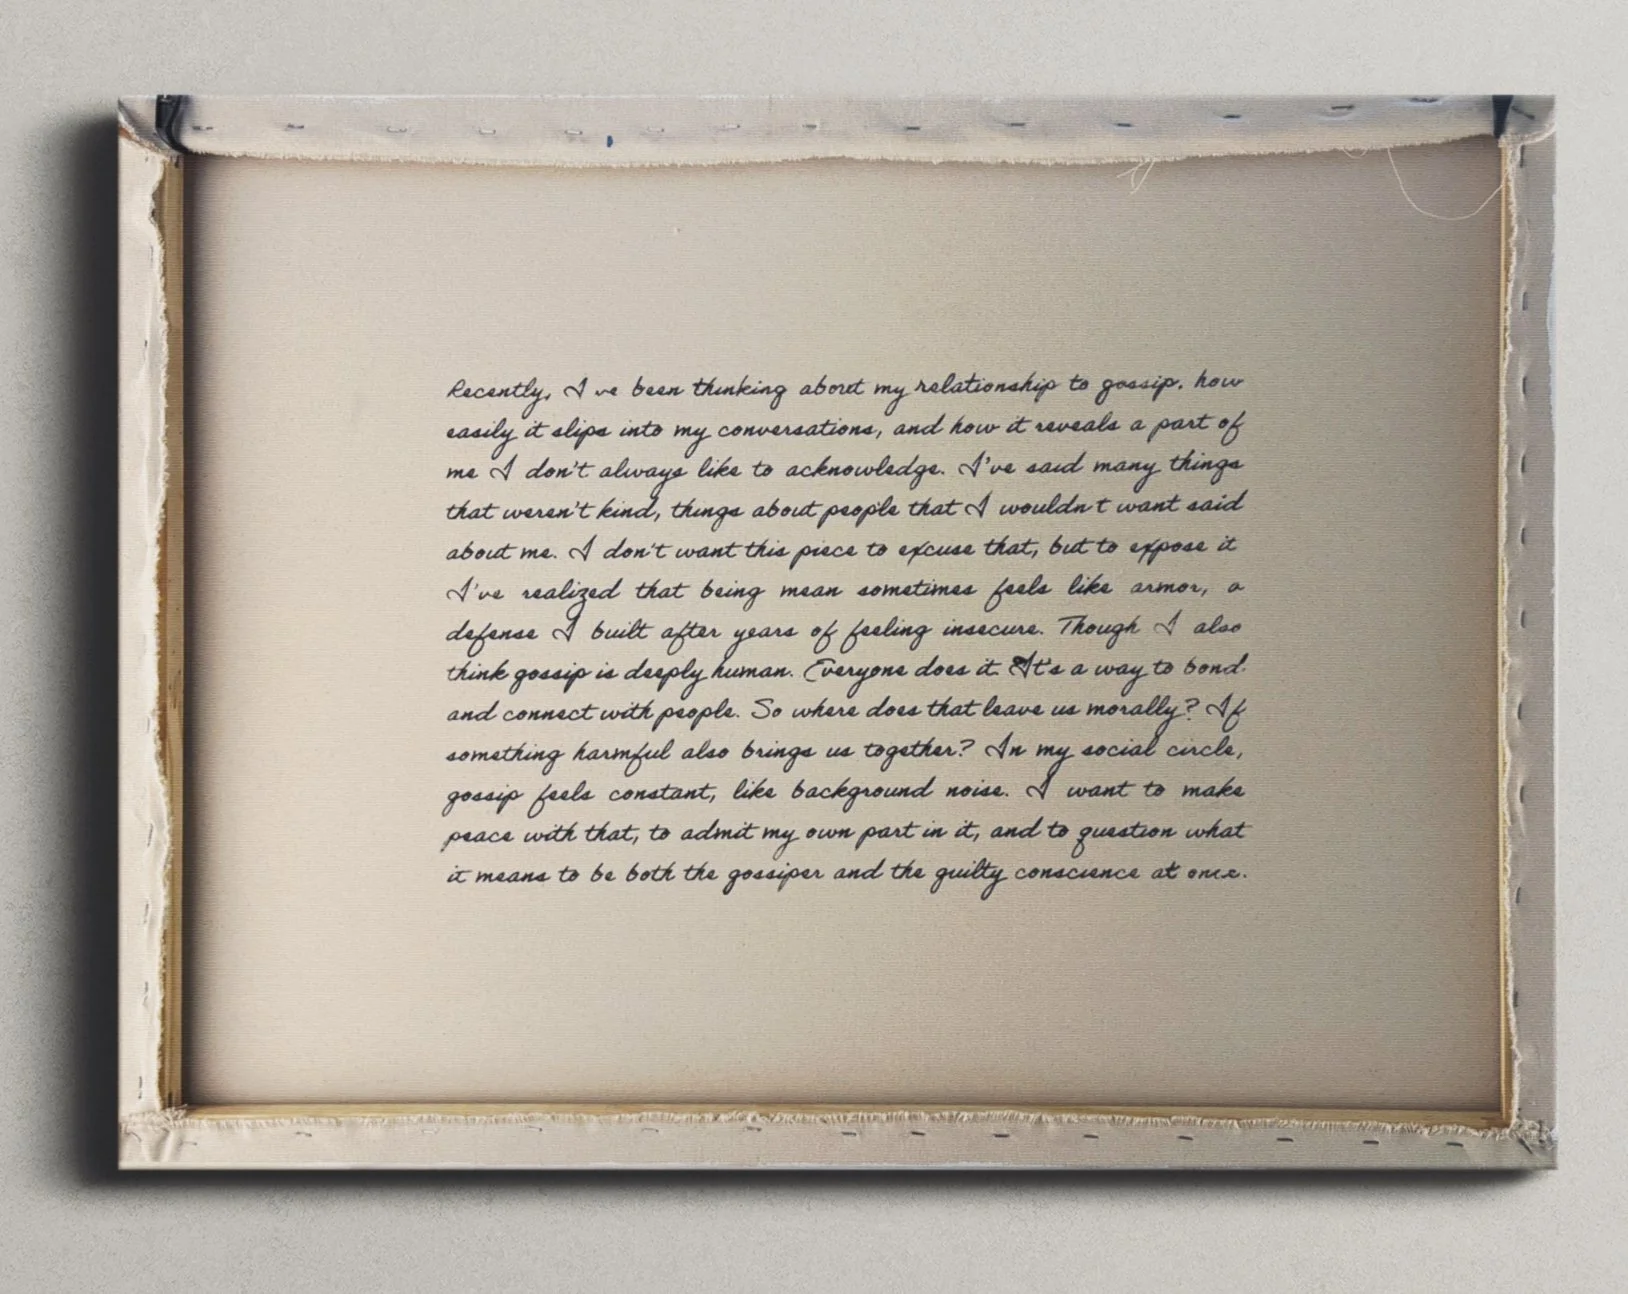 Recently, I've been thinking about my relationship to gossip. how
easily it slips into my conversations, and how it reveals a part of
me I don't always like to acknowledge. I've said many things
that weren't kind, things about people that I wouldn't want said
about me. I don't want this piece to excuse that, but to expose it
I've realized that being mean sometimes feels like armor, a
defense I built after years of feeling insecure. Though I also
think gossip is deeply human. Everyone does it. It's a way to bond
and connect with people. So where does that leave us morally? If
something harmful also brings us together? In my social circle,
gossip feels constant, like background noise. I want to make
peace with that, to admit my own part in it, and to question what
it means to be both the gossiper and the guilty conscience at once.